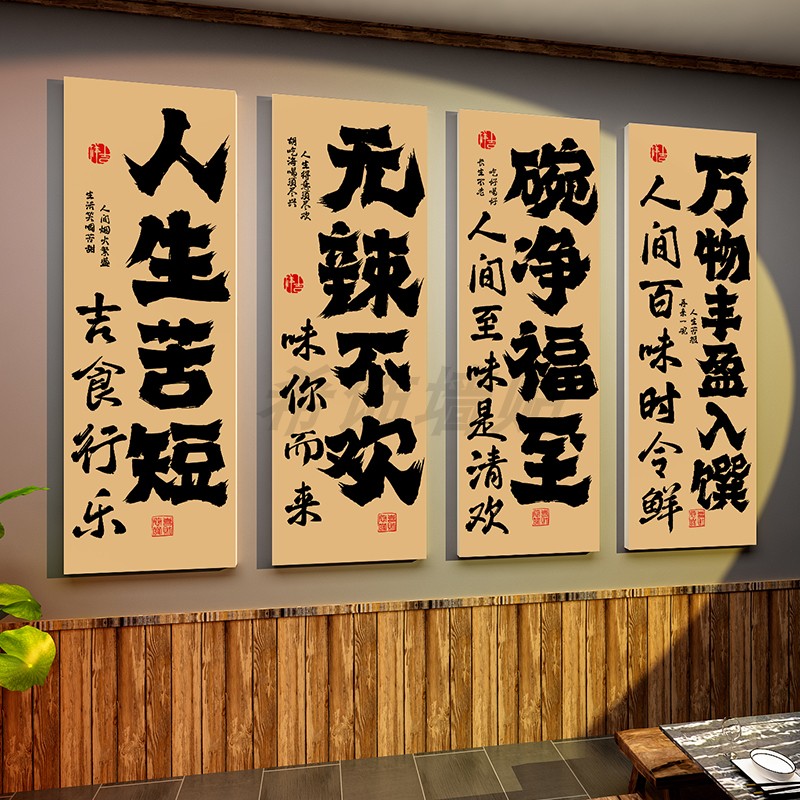 人生苦短
人间烟火繁盛
吉食行乐
无辣不欢
人生得意须尽欢
胡吃海喝须尽兴
味你而来
碗净福至
吃好喝好
长生不老
人间至味是清欢
万物丰盈入馔
人生苦短
再来一碗
人间百味时令鲜
墙贴